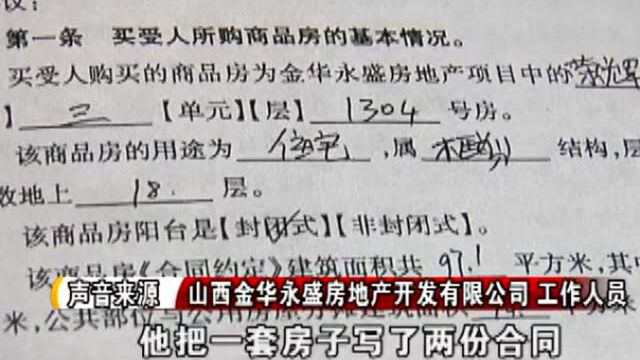 议：
第一条 买受人所购商品房的基本情况。
买受人购买的商品房为金华永盛房地产项目中的
】三【单元】【层】1304号房。
该商品房的用途为住宅，属 结构，层
数地上18.层。
该商品房阳台是【封闭式】【非封闭式】。
该商品房《合同约定》建筑面积共97.1平方米，其中
声音来源 山西金华永盛房地产开发有限公司 工作人员
米，公共部位与公用房屋分摊建筑面积
他把一套房子写了两份合同